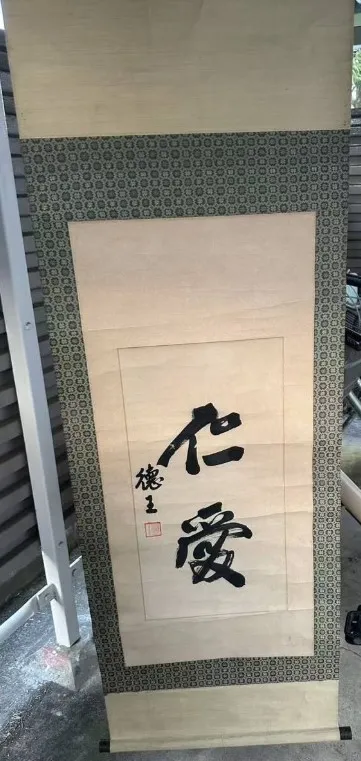 仁愛
德王